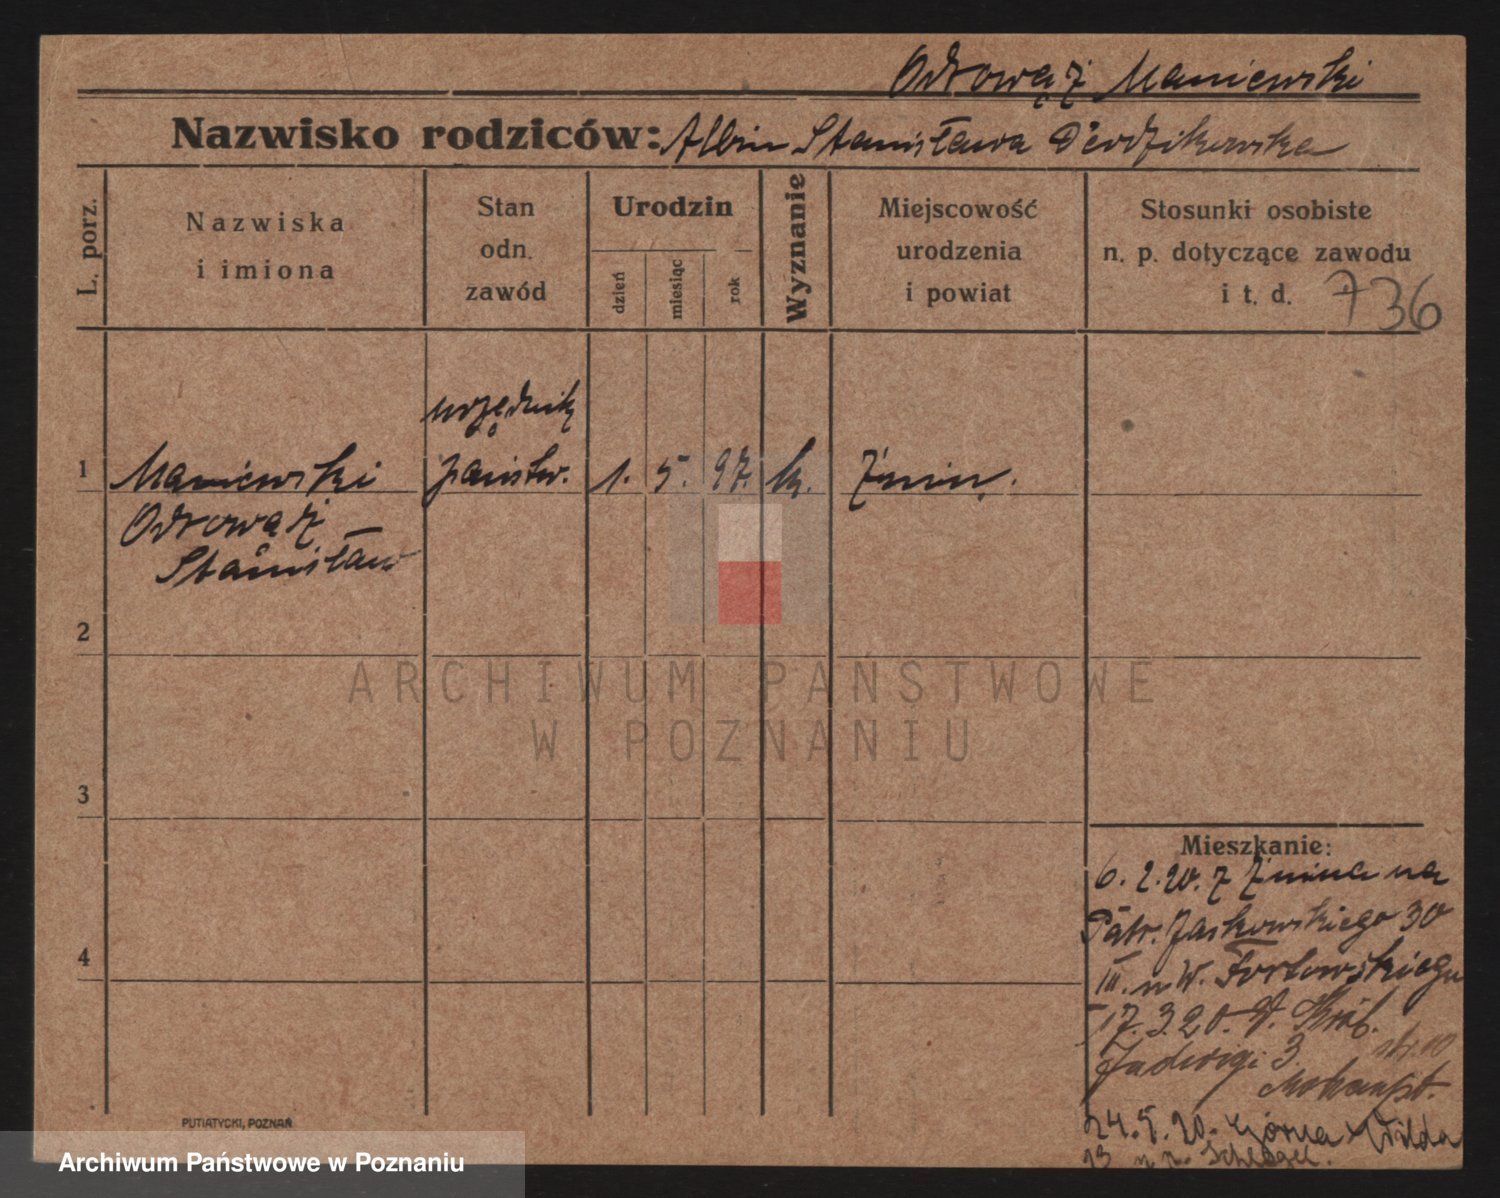 Odrowąż Maniewski
Nazwisko rodziców: Albin Stanisława
L. porz.
Nazwiska
i imiona
Stan
odn.
zawód
Urodzin
dzień
miesiąc
rok
Wyznanie
Miejscowość
urodzenia
i powiat
Stosunki osobiste
n. p. dotyczące zawodu
i t. d. 736
urzędnik
1 Maniewski państw. 1. 5. 97. k. Żnin.
Odrowąż
Stanisław
2
ARCHIWUM PAŃSTWOWE
W POZNANIU
3
Mieszkanie:
6. 2. 20. z Żnina na
Patr. Jackowskiego 30
III. u W.
4
17. 3. 20. Król.
Jadwigi 3.
24. 20. Górna Wilda
PUTIATYCKI, POZNAŃ
Archiwum Państwowe w Poznaniu